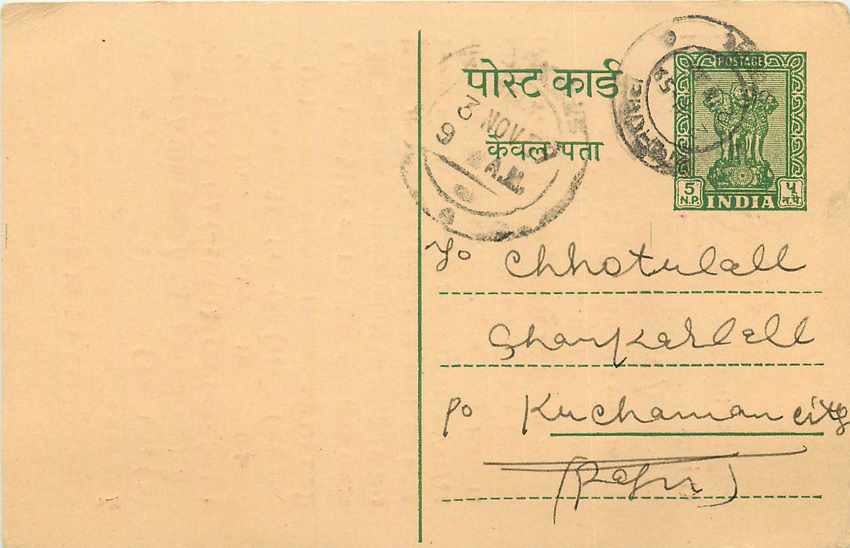 पोस्ट कार्ड
केवल पता
POSTAGE
5 N.P.
INDIA
५ न.पै.
3 NOV 59
9
A.M.
To Chhotulall
Shankarlall
PO Kuchaman city
(Rajn)